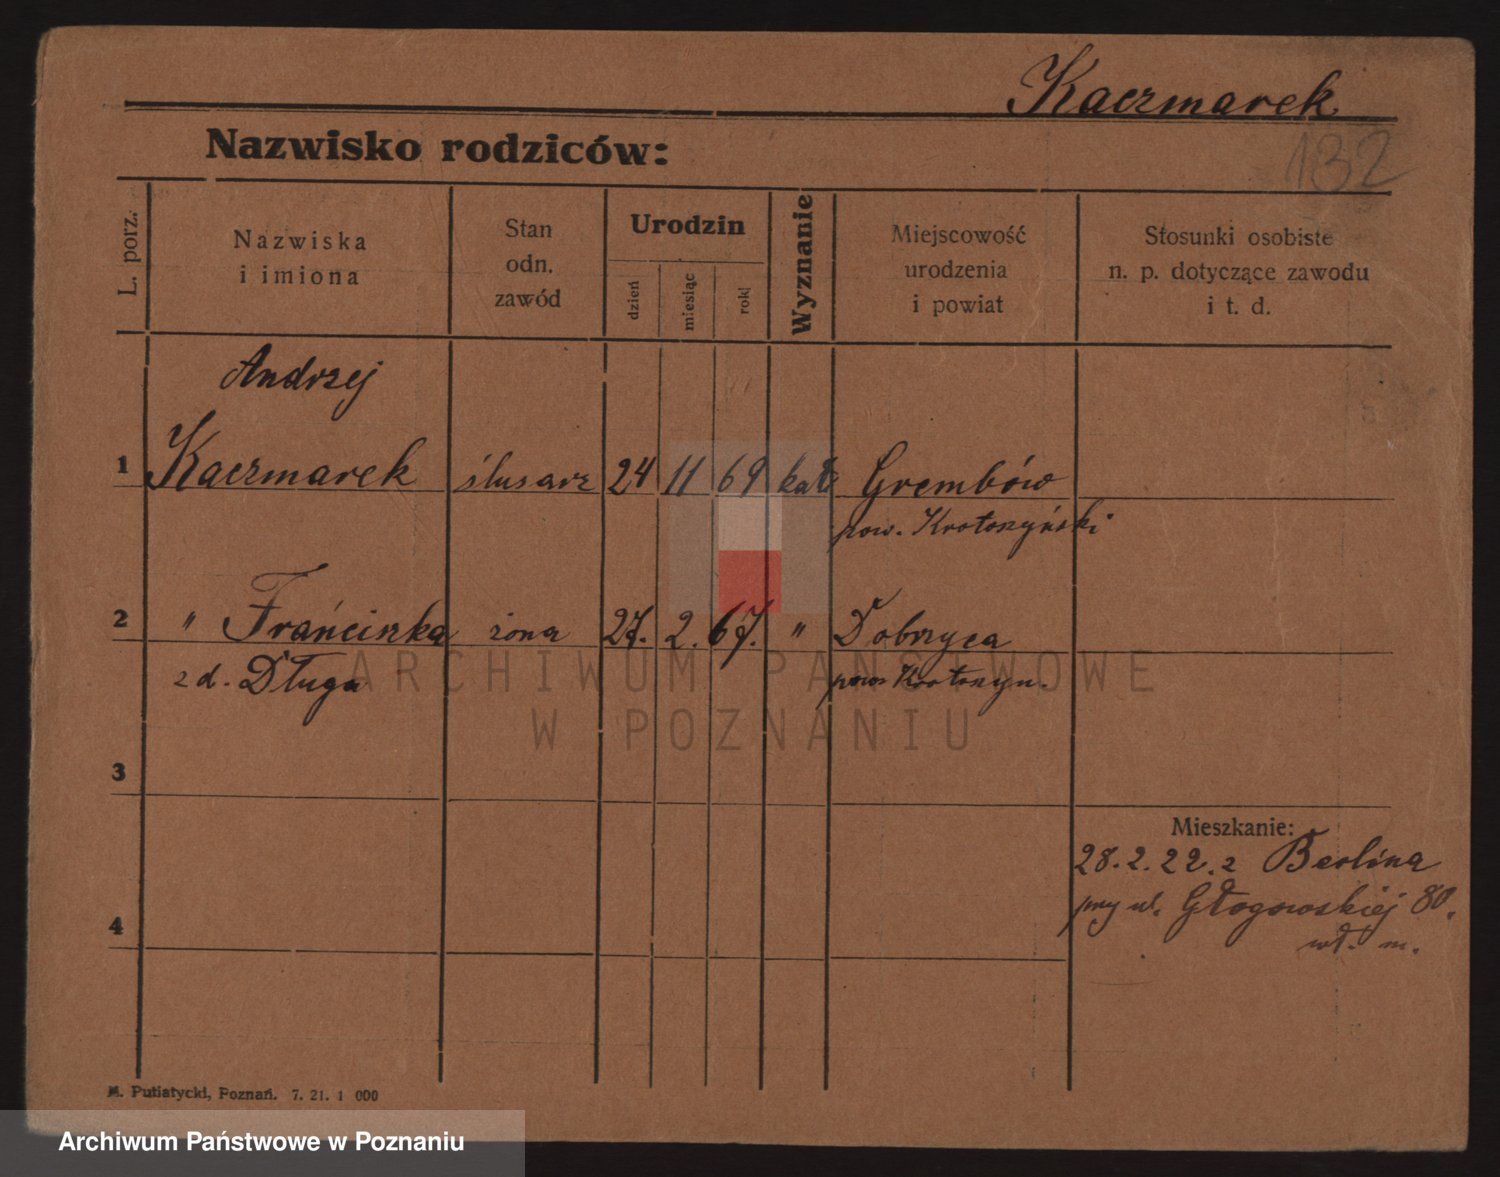 Kaczmarek
132
Nazwisko rodziców:
L. porz.
Nazwiska
i imiona
Stan
odn.
zawód
Urodzin
dzień
miesiąc
rok
Wyznanie
Miejscowość
urodzenia
i powiat
Stosunki osobiste
n. p. dotyczące zawodu
i t. d.
Andrzej
1 Kaczmarek ślusarz 24 11 69 kat Grembów
pow. Krotoszyński
2 " Frańciszka żona 27. 2. 67. " Dobrzyca
z d. Długa pow Krotoszyn.
ARCHIWUM PAŃSTWOWE
W POZNANIU
3
Mieszkanie:
28.2.22. z Berlina
przy ul. Głogowskiej 80.
wł. m.
4
M. Putiatycki, Poznań. 7. 21. 1 000
Archiwum Państwowe w Poznaniu